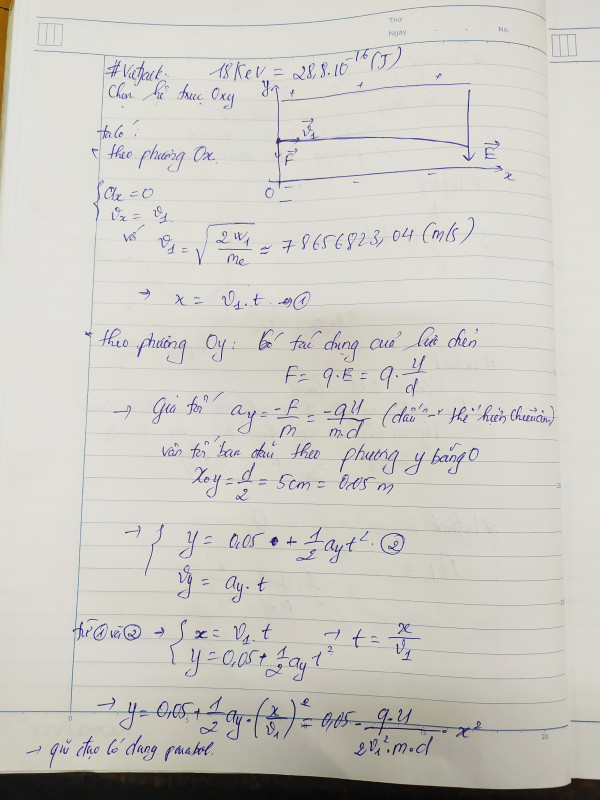 Thứ
Ngày No.
#Vietjack: 18KeV = 28,8.10^-16 (J)
Chọn hệ trục Oxy
y + + +
ta có:
v⃗1
* theo phương Ox.
F⃗ E⃗
O - - - x
{ ax = 0
vx = v1
với v1 = √(2W1/me) ≈ 78656823,04 (m/s)
→ x = v1.t ①
* theo phương Oy: tác dụng của lực điện
F = q.E = q.U/d
→ Gia tốc ay = -F/m = -qU/m.d (dấu "-" thể hiện)
vận tốc ban đầu theo phương y bằng 0
xoy = d/2 = 5cm = 0,05 m
→ { y = 0,05 + 1/2 ay t². ②
vy = ay. t
từ ① và ② → { x = v1. t → t = x/v1
y = 0,05 + 1/2 ay t²
→ y = 0,05 + 1/2 ay.(x/v1)² = 0,05 - q.U/2v1².m.d . x²
→ quĩ đạo có dạng parabol.
20